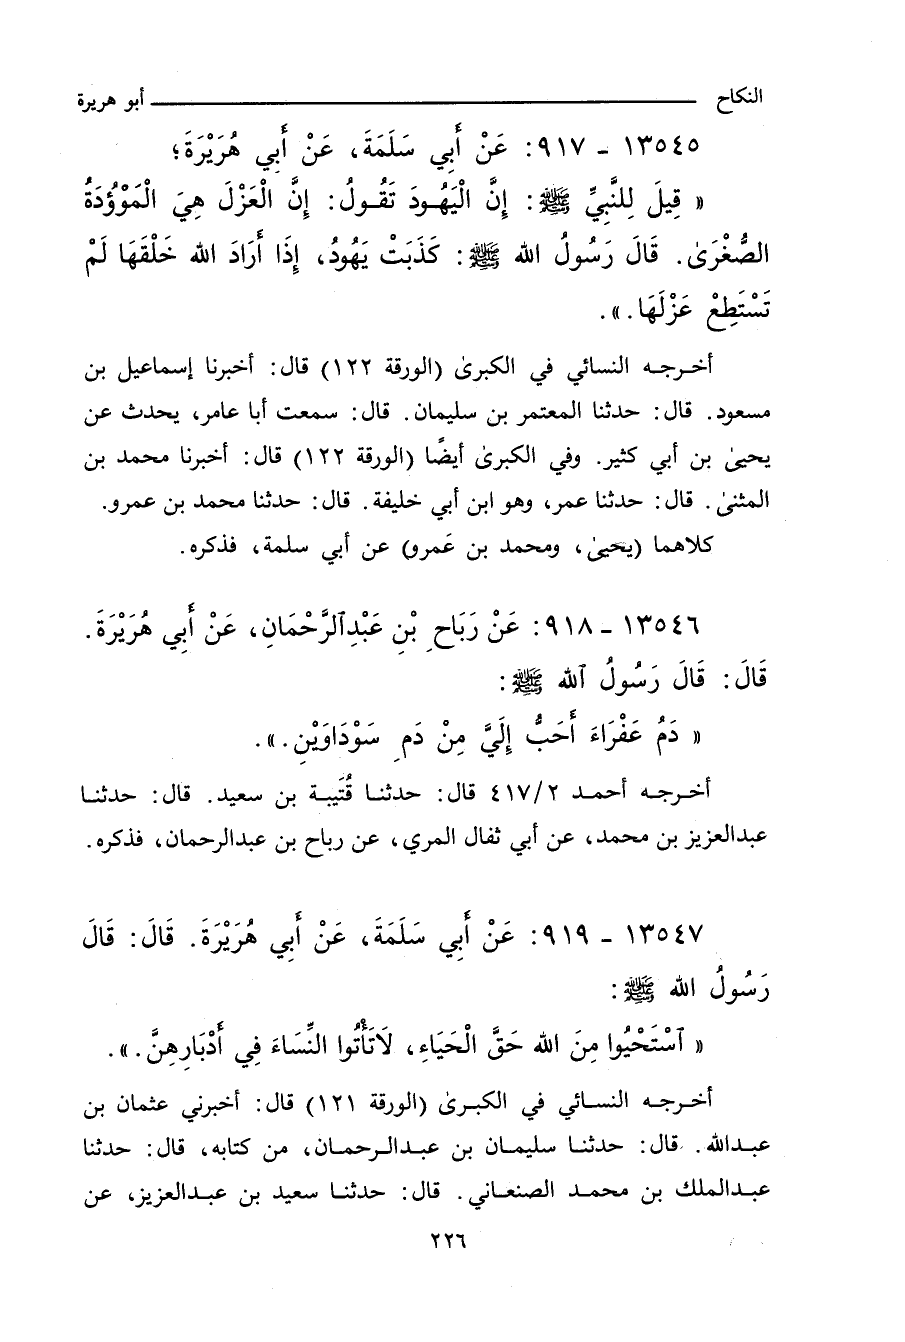 النكاح ــــــــــــــــــــ أبو هريرة
١٣٥٤٥ ـ ٩١٧: عَنْ أَبِي سَلَمَةَ، عَنْ أَبِي هُرَيْرَةَ؛
« قِيلَ لِلنَّبِيِّ ﷺ: إِنَّ الْيَهُودَ تَقُولُ: إِنَّ الْعَزْلَ هِيَ الْمَوْؤُدَةُ
الصُّغْرَىٰ. قَالَ رَسُولُ الله ﷺ: كَذَبَتْ يَهُودُ، إِذَا أَرَادَ الله خَلْقَهَا لَمْ
تَسْتَطِعْ عَزْلَهَا.».
أخرجه النسائي في الكبرىٰ (الورقة ١٢٢) قال: أخبرنا إسماعيل بن
مسعود. قال: حدثنا المعتمر بن سليمان. قال: سمعت أبا عامر، يحدث عن
يحيىٰ بن أبي كثير. وفي الكبرىٰ أيضًا (الورقة ١٢٢) قال: أخبرنا محمد بن
المثنىٰ. قال: حدثنا عمر، وهو ابن أبي خليفة. قال: حدثنا محمد بن عمرو.
كلاهما (يحيىٰ، ومحمد بن عَمرو) عن أبي سلمة، فذكره.
١٣٥٤٦ ـ ٩١٨: عَنْ رَبَاحِ بْنِ عَبْدِالرَّحْمَانِ، عَنْ أَبِي هُرَيْرَةَ.
قَالَ: قَالَ رَسُولُ ٱلله ﷺ:
« دَمُ عَفْرَاءَ أَحَبُّ إِلَيَّ مِنْ دَمِ سَوْدَاوَيْنِ.».
أخرجه أحمد ٤١٧/٢ قال: حدثنا قُتَيبة بن سعيد. قال: حدثنا
عبدالعزيز بن محمد، عن أبي ثفال المري، عن رباح بن عبدالرحمان، فذكره.
١٣٥٤٧ ـ ٩١٩: عَنْ أَبِي سَلَمَةَ، عَنْ أَبِي هُرَيْرَةَ. قَالَ: قَالَ
رَسُولُ الله ﷺ:
« ٱسْتَحْيُوا مِنَ الله حَقَّ الْحَيَاءِ، لَاتَأْتُوا النِّسَاءَ فِي أَدْبَارِهِنَّ.».
أخرجه النسائي في الكبرىٰ (الورقة ١٢١) قال: أخبرني عثمان بن
عبدالله. قال: حدثنا سليمان بن عبدالرحمان، من كتابه، قال: حدثنا
عبدالملك بن محمد الصنعاني. قال: حدثنا سعيد بن عبدالعزيز، عن
٢٢٦